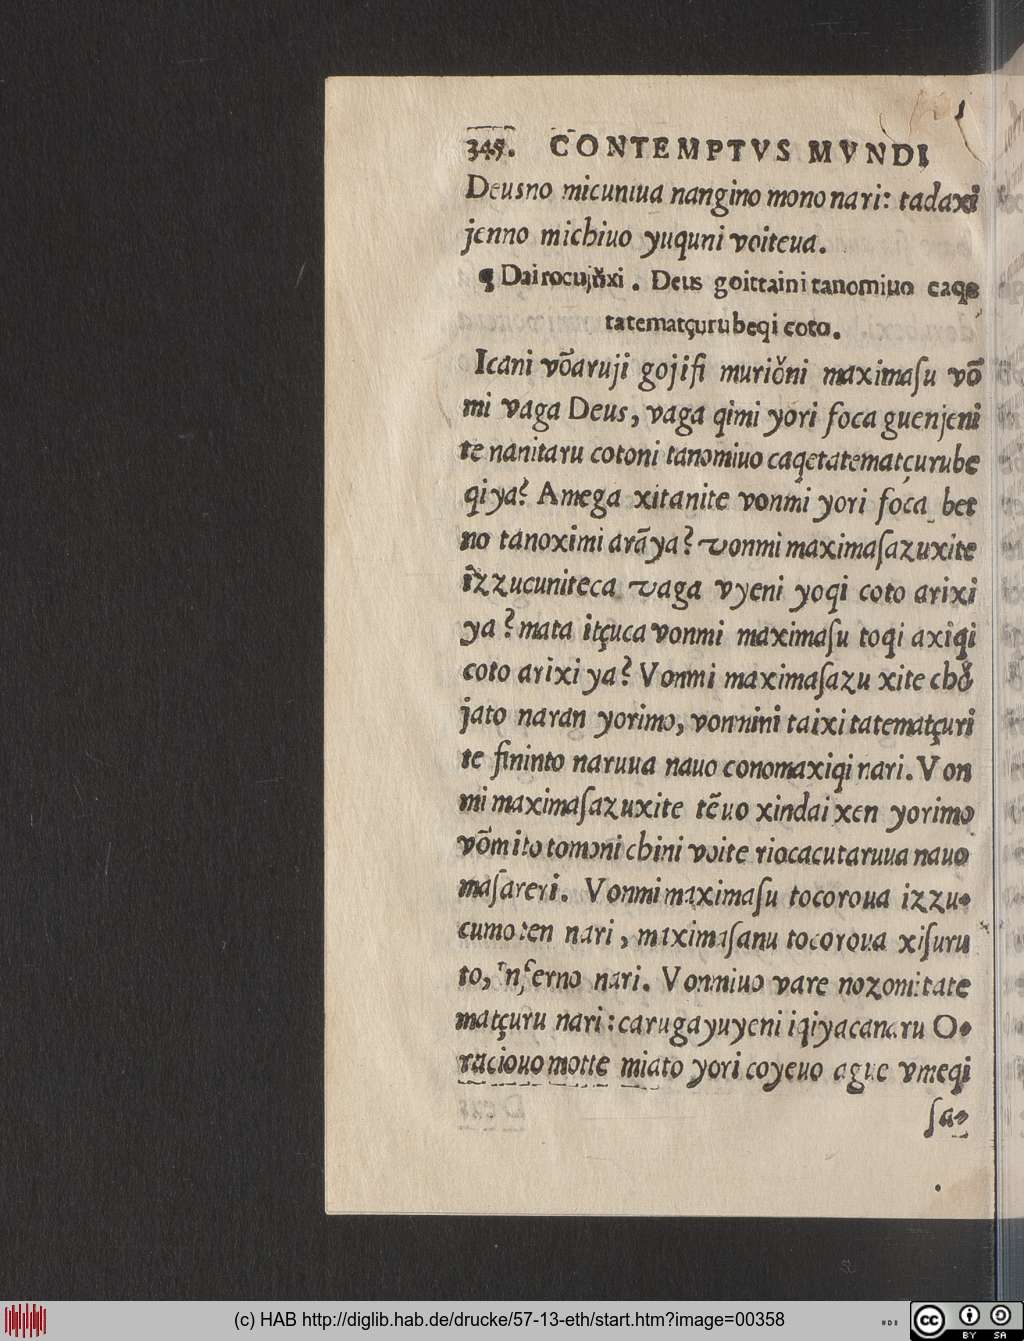 345. CONTEMPTVS MVNDI
Deusno micuniua nangino mono nari: tadaxi
jenno michiuo yuquni voiteua.
¶ Dai rocujŭxi. Deus goittaini tanomiuo caqe
tatematçuru beqi coto.
Icani vŏaruji gojifi muriŏni maximaſu võ
mi vaga Deus, vaga qimi yori foca guenjeni
te nanitaru cotoni tanomiuo caqetatematçurube
qi ya? Amega xitanite vonmi yori foca bet
no tanoximi arãya? vonmi maximaſazuxite
izzucuniteca vaga vyeni yoqi coto arixi
ya? mata itçuca vonmi maximaſu toqi axiqi
coto arixi ya? Vonmi maximaſazu xite chŏ
jato naran yorimo, vonnini taixi tatematçuri
te fininto naruua nauo conomaxiqi nari. Von
mi maximaſazuxite tẽuo xindai xen yorimo
võmito tomoni chini voite riocacutaruua nauo
maſareri. Vonmi maximaſu tocoroua izzu-
cumo ten nari, maximaſanu tocoroua xiſuru
to, Inferno nari. Vonmiuo vare nozomitate
matçuru nari: carugayuyeni iqiyacanaru O-
raciouo motte miato yori coyeuo ague vmeqi
ſa-
(c) HAB http://diglib.hab.de/drucke/57-13-eth/start.htm?image=00358
cc BY SA